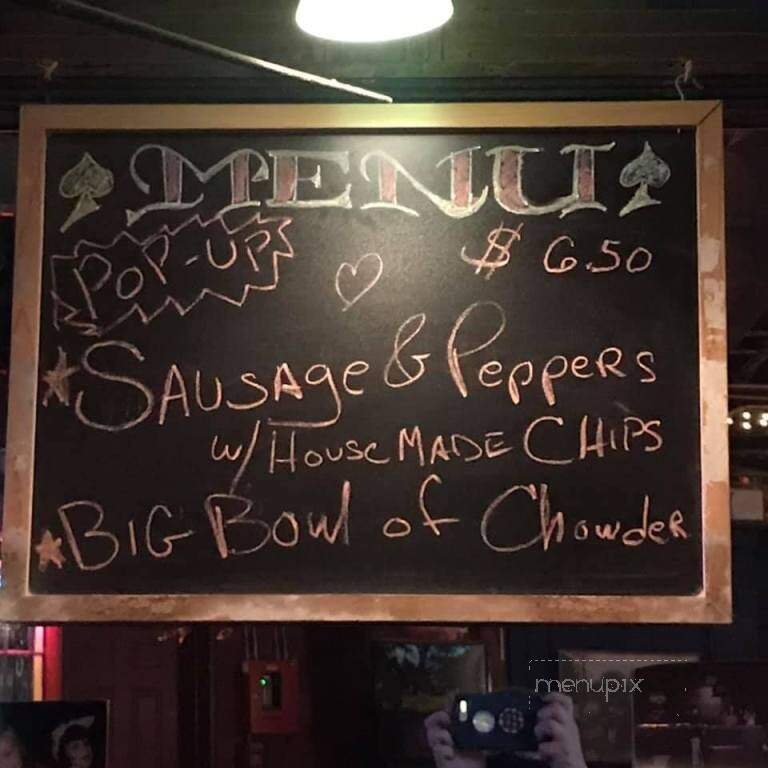 MENU
POP-UP $ 6.50
SAUSAge & PePPeRS
w/ House MADE CHIPS
BIG Bowl of ChowdeR
menupix